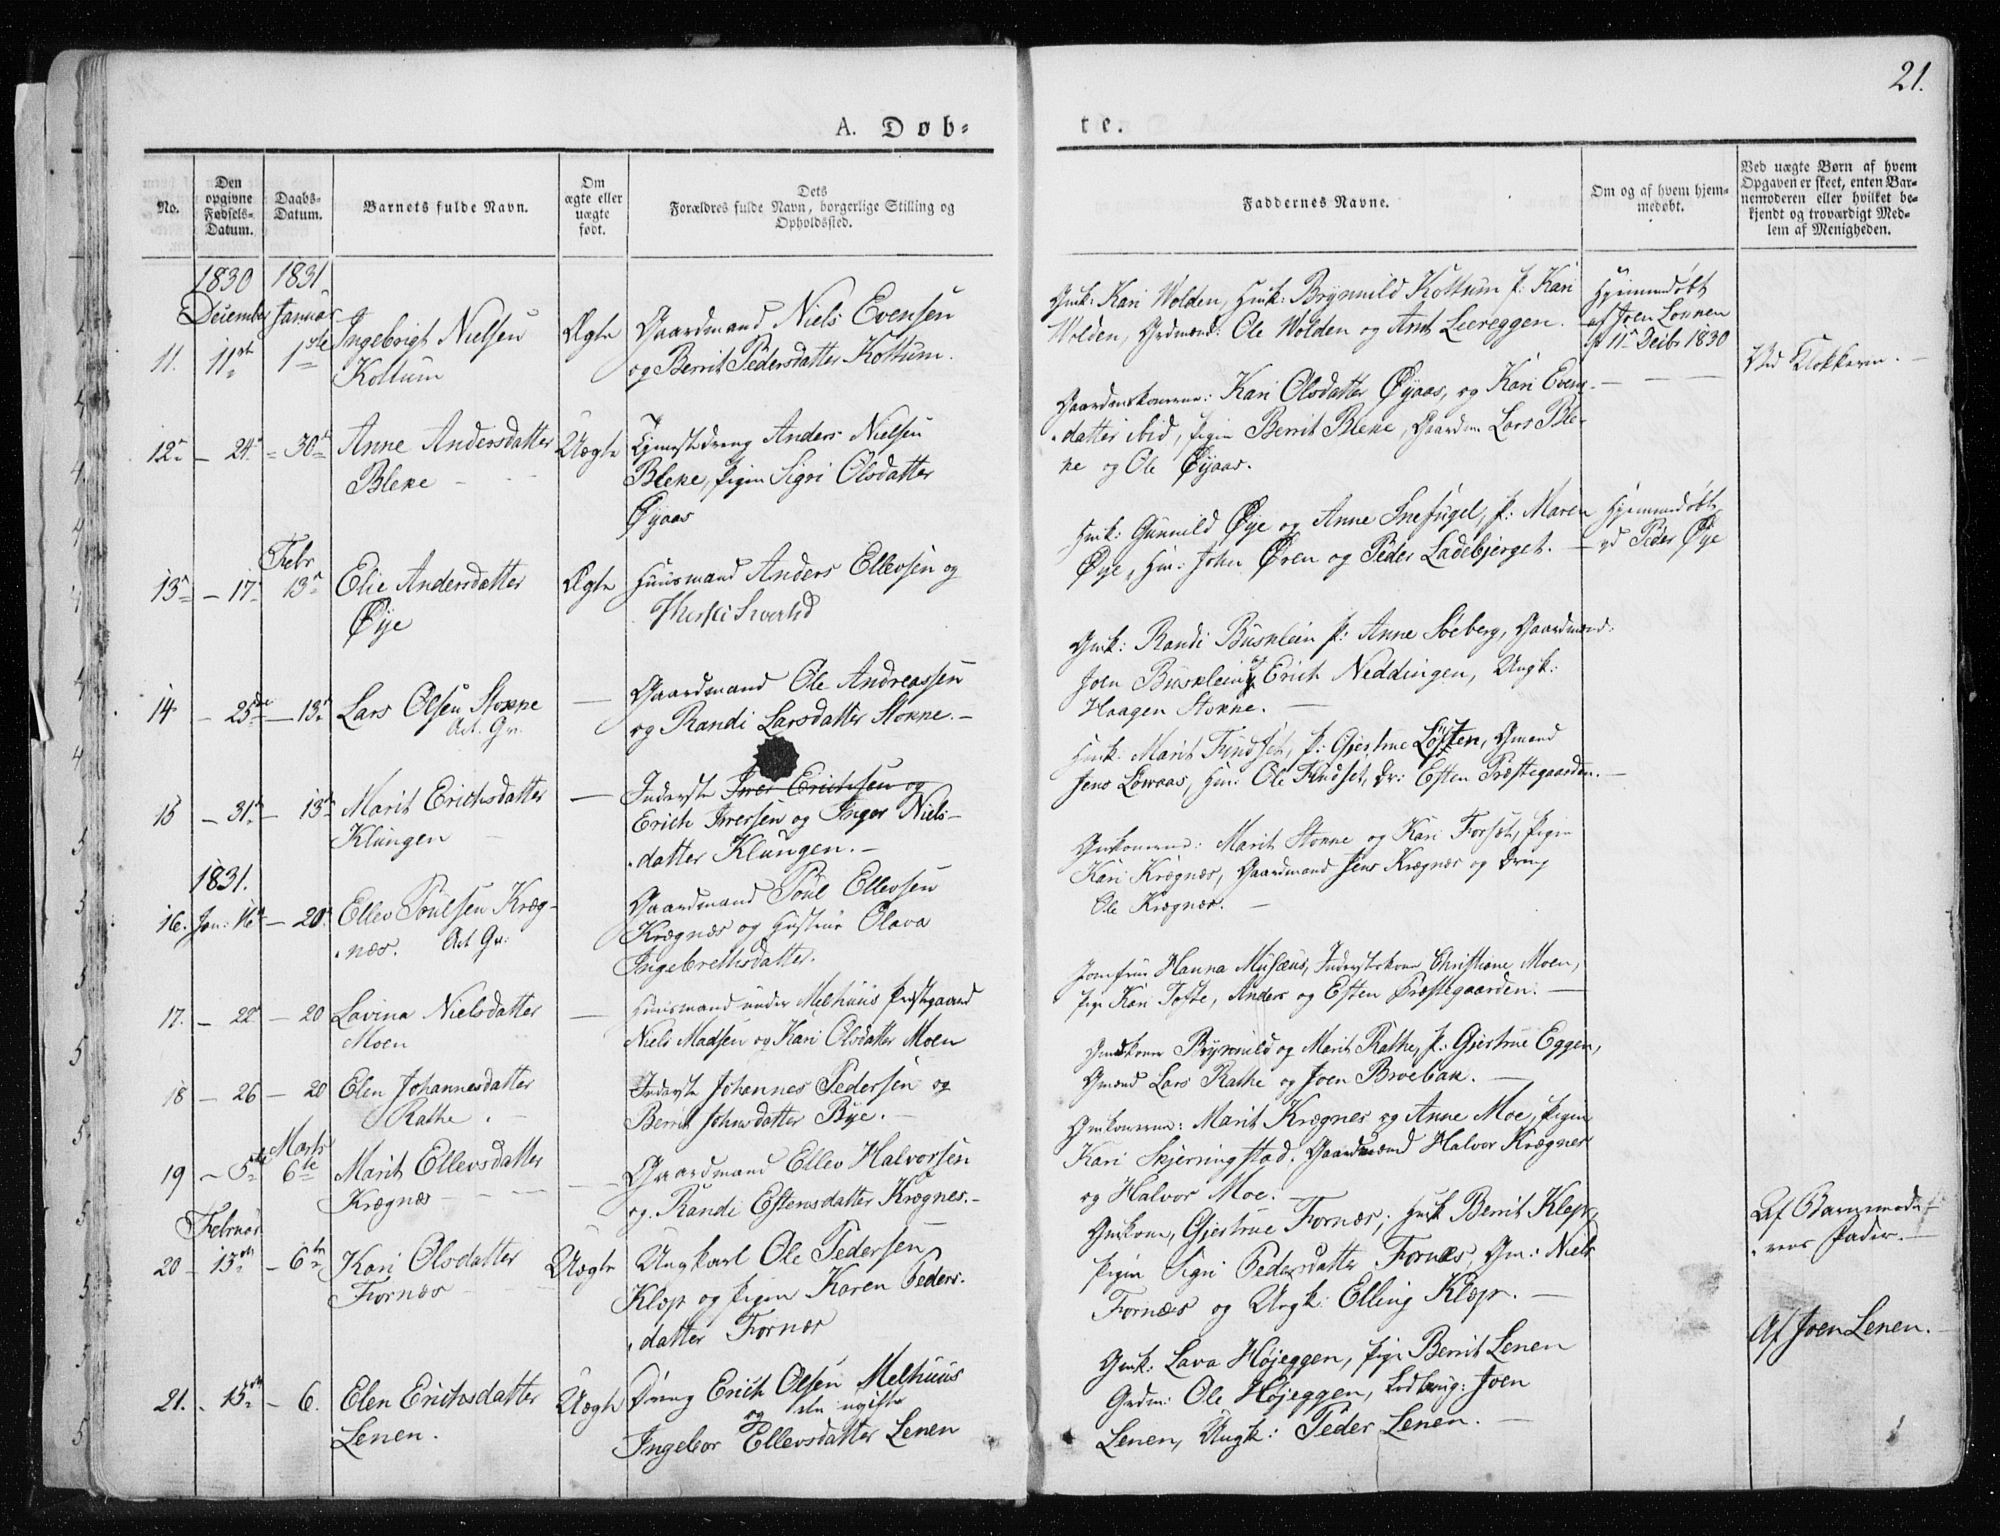 21.
A. Døb-
te.
No.
Den opgivne Fødsels-Datum.
Daabs-Datum.
Barnets fulde Navn.
Om ægte eller uægte født.
Dets
Forældres fulde Navn, borgerlige Stilling og
Opholdssted.
Faddernes Navne.
Om og af hvem hjem-
medøbt.
Ved uægte Børn af hvem
Opgaven er skeet, enten Bar-
nemoderen eller hvilket be-
kjendt og troværdigt Med-
lem af Menigheden.
1830 1831
December Januar
11. 11te 1ste Ingebrigt Nielsen Ægte Gaardmand Niels Evensen
Kottum og Berrit Pedersdatter Kottum.
Gmk: Kari Wolden, Huk: Brynnild Kottum P: Kari
Wolden, Grdmænd: Ole Wolden og Arnt Leereggen.
Hjemmedøbt
af Joen Lonnen
11 Decbr 1830
12 - 24 - 30 Anne Andersdatter Uægte Tjenestedreng Anders Nielsen
Bleke Bleke, Pigen Sigri Olsdatter
Øyaas
Gaardmskonerne: Kari Olsdatter Øyaas, og Kari Evens-
datter ibid, Pigen Berrit Bleke, Gaardm: Lars Ble-
ke og Ole Øyaas.
Ved Klokkeren.
Febr
13 - 17 13 Elie Andersdatter Ægte Huusmand Anders Ellevsen og
Øye
Hmk: Gunnild Øye og Anne Snefugel, P: Maren
Øye, Hm: John Øren og Peder Ladebjerget.
Hjemmedøbt
ved Peder Øye
14 - 25de - 13 Lars Olsen Stokke — Gaardmand Ole Andreassen
og Randi Larsdatter Stokke. -
Gmk: Randi Busklein P: Anne Søeberg, Gaardmænd:
Joen Busklein og Erich Neddingen, Ungk:
Haagen Stokke.
15 - 31 - 13 Marit Erichsdatter — Inderste Iver Erichsen og
Klungen Erich Iversen og Inger Niels-
datter Klungen. -
Huk: Marit Tyndset, P: Gjertrue Løften, Gmand
Jens Løwaas, Hm: Ole Tindset, Dr: Esten Præstegaarden.
1831.
16. Jan: 16 - 20 Ellev Poulsen Kræg-
næs. Gaardmand Poul Ellevsen
Krægnæs og Hustrue Olava
Ingebrethsdatter.
Gmkonerne: Marit Stokke og Kari Forset, Pigen
Kari Krægnæs, Gaardmand Jens Krægnæs og Dreng
Ole Krægnæs. -
17. - 22 - 20 Lavina Nielsdatter — Huusmand under Melhuus Præstegaard
Moen Niels Madsen og Kari Olsdatter Moen
Jomfrue Hanna Musæus, Inderstekone Christiane Moen,
Pige Kari Tofte, Anders og Esten Præstegaarden.
18 - 26 - 20 Elen Johannesdatter Inderste Johannes Pedersen og
Rathe Berrit Johnsdatter Bye. -
Gmdkoner Brynnild og Marit Rathe, P: Gjertrue Eggen,
Gmænd Lars Rathe og Joen Broebak. -
Marts
19 - 5 6te Marit Ellevsdatter — Gaardmand Ellev Halvorsen
Krægnæs og Randi Estensdatter Krægnes. -
Gmkonerne: Marit Krægnes og Anne Moe, Pigen
Kari Skjerningstad. Gaardmænd Halvor Krægnes
og Halvor Moe. -
Februar
20 - 13 - 6te Kari Olsdatter Uægte Ungkarl Ole Pedersen
Fornæs Klæp og Pigen Karen Peders-
datter Fornæs
Gmkone, Gjertrue Fornæs, Huk Berrit Klæp,
Pigen Sigri Pedersdatter Fornæs, Gm: Niels
Fornæs og Ungk: Elling Klæp. -
Af Barnemode-
rens Fader. -
21. - 15 - 6. Elen Erichsdatter Uægte Dreng Erich Olsen Melhuus
Lenen. og ugifte
Ingebor Ellevsdatter Lenen
Gmk: Lava Højeggen, Pige Berrit Lenen
Grdm: Ole Højeggen, Joen
Lenen, Ungk: Peder Lenen. -
Af Joen Lenen.